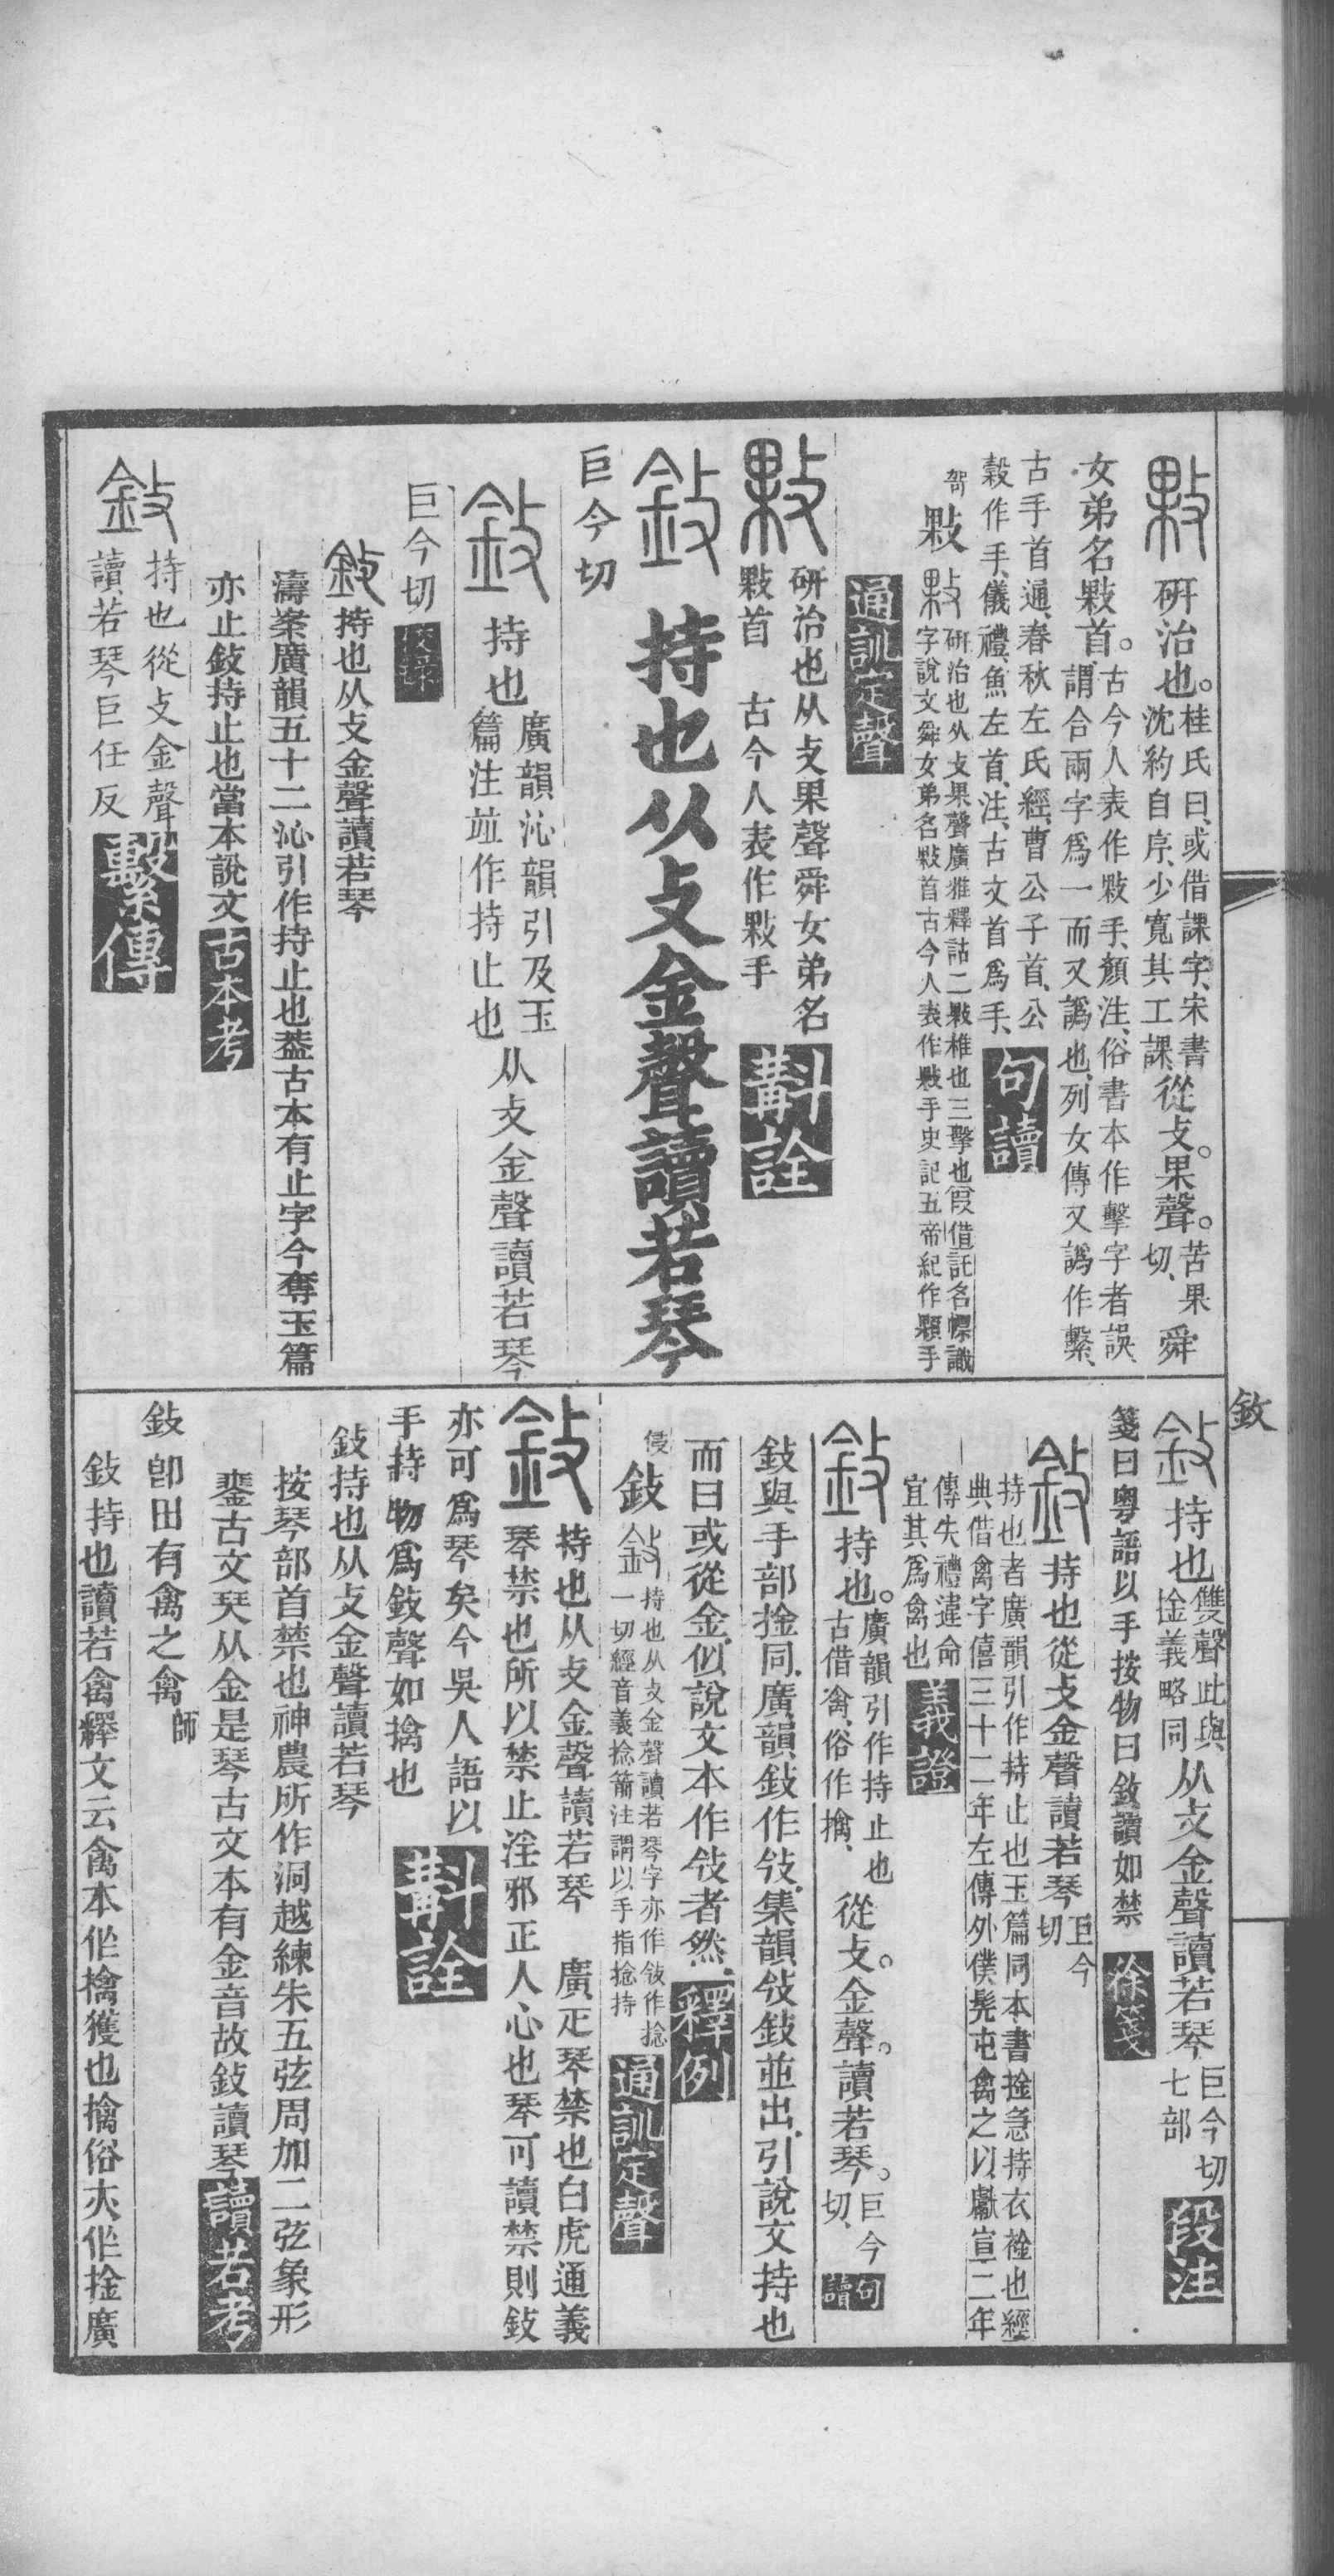 敤研治也。桂氏曰、或借課字、宋書
沈約自序、少寬其工課、從攴。果聲。苦果切、舜
女弟名敤首。古今人表作敤手、顏注、俗書本作擊字者誤、
謂合兩字爲一而又譌也、列女傳又譌作繫、
古手首通、春秋左氏經、曹公子首、公
穀作手、儀禮、魚左首、注、古文首爲手、句讀
敤研治也从攴果聲廣雅釋詁二敤椎也三擊也假借託名幖識
字說文舜女弟名敤首古今人表作敤手史記五帝紀作顆手
通訓定聲
敤研治也从攴果聲舜女弟名
敤首 古今人表作敤手斠詮
㪁持也从攴金聲讀若琴
巨今切
㪁持也廣韻沁韻引及玉
篇注竝作持止也从攴金聲讀若琴
巨今切
㪁持也从攴金聲讀若琴
濤案廣韻五十二沁引作持止也葢古本有止字今奪玉篇
亦止㪁持止也當本說文古本考
㪁持也從攴金聲
讀若琴巨任反繫傳
㪁
㪁持也雙聲此與
捦義略同从攴金聲讀若琴巨今切
七部段注
箋曰粵語以手按物曰㪁讀如禁徐箋
㪁持也從攴金聲讀若琴巨今切
持也者廣韻引作持止也玉篇同本書捦急持衣䘳也經
典借禽字僖三十二年左傳外僕髡屯禽之以獻宣二年
傳失禮違命
宜其爲禽也義證
㪁持也。廣韻引作持止也
古借禽、俗作擒、從攴。金聲。讀若琴。巨今切、句讀
㪁與手部捦同、廣韻㪁作㩒、集韻㩒㪁並出、引說文持也
而曰或從金、似說文本作㩒者然、釋例
㪁持也从攴金聲讀若琴字亦作㩒作捻
一切經音義捻箭注謂以手指捻持通訓定聲
㪁持也从攴金聲讀若琴 廣疋琴禁也白虎通義
琴禁也所以禁止淫邪正人心也琴可讀禁則㪁
亦可爲琴矣今吳人語以
手持物爲㪁聲如擒也斠詮
㪁持也从攴金聲讀若琴
按琴部首禁也神農所作洞越練朱五弦周加二弦象形
銮古文珡从金是琴古文本有金音故㪁讀琴讀若考
㪁卽田有禽之禽師
㪁持也讀若禽釋文云禽本作擒獲也擒俗夾作捦廣